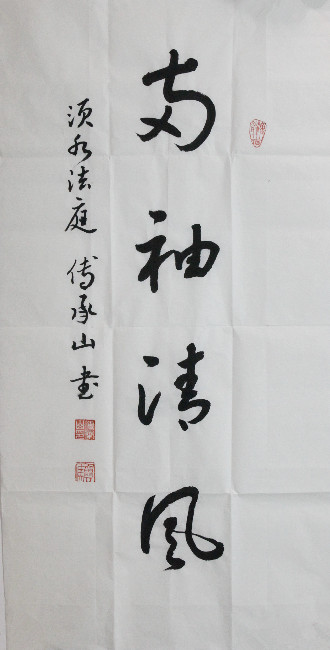 两袖清风
须水法庭 傅承山书